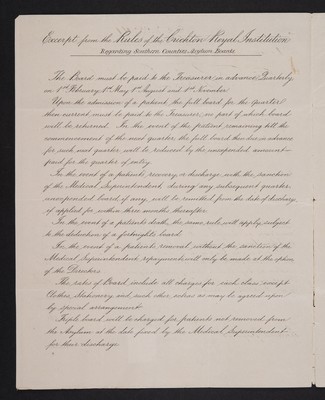 Excerpt from the Rules of the Crichton Royal Institution
Regarding Southern Counties Asylum Boards
The Board must be paid to the Treasurer in advance Quarterly
on 1st February, 1st May, 1st August and 1st November
Upon the admission of a patient, the full board for the quarter
then current must be paid to the Treasurer, no part of which board
will be returned. In the event of the patient remaining till the
commencement of the next quarter, the full board then due in advance
for such next quarter will be reduced by the unexpended amount
paid for the quarter of entry.
In the event of a patient's recovery, or discharge with the sanction
of the Medical Superintendent during any subsequent quarter,
unexpended board, if any, will be remitted from the date of discharge,
if applied for within three months thereafter.
In the event of a patient's death, the same rule will apply, subject
to the deduction of a fortnight's board.
In the event of a patient's removal without the sanction of the
Medical Superintendent, repayments will only be made at the option
of the Directors.
The rates of Board include all charges for each class except
Clothes, Stationery and such other extras as may be agreed upon
by special arrangement.
Triple board will be charged for patients not removed from
the Asylum at the date fixed by the Medical Superintendent
for their discharge.